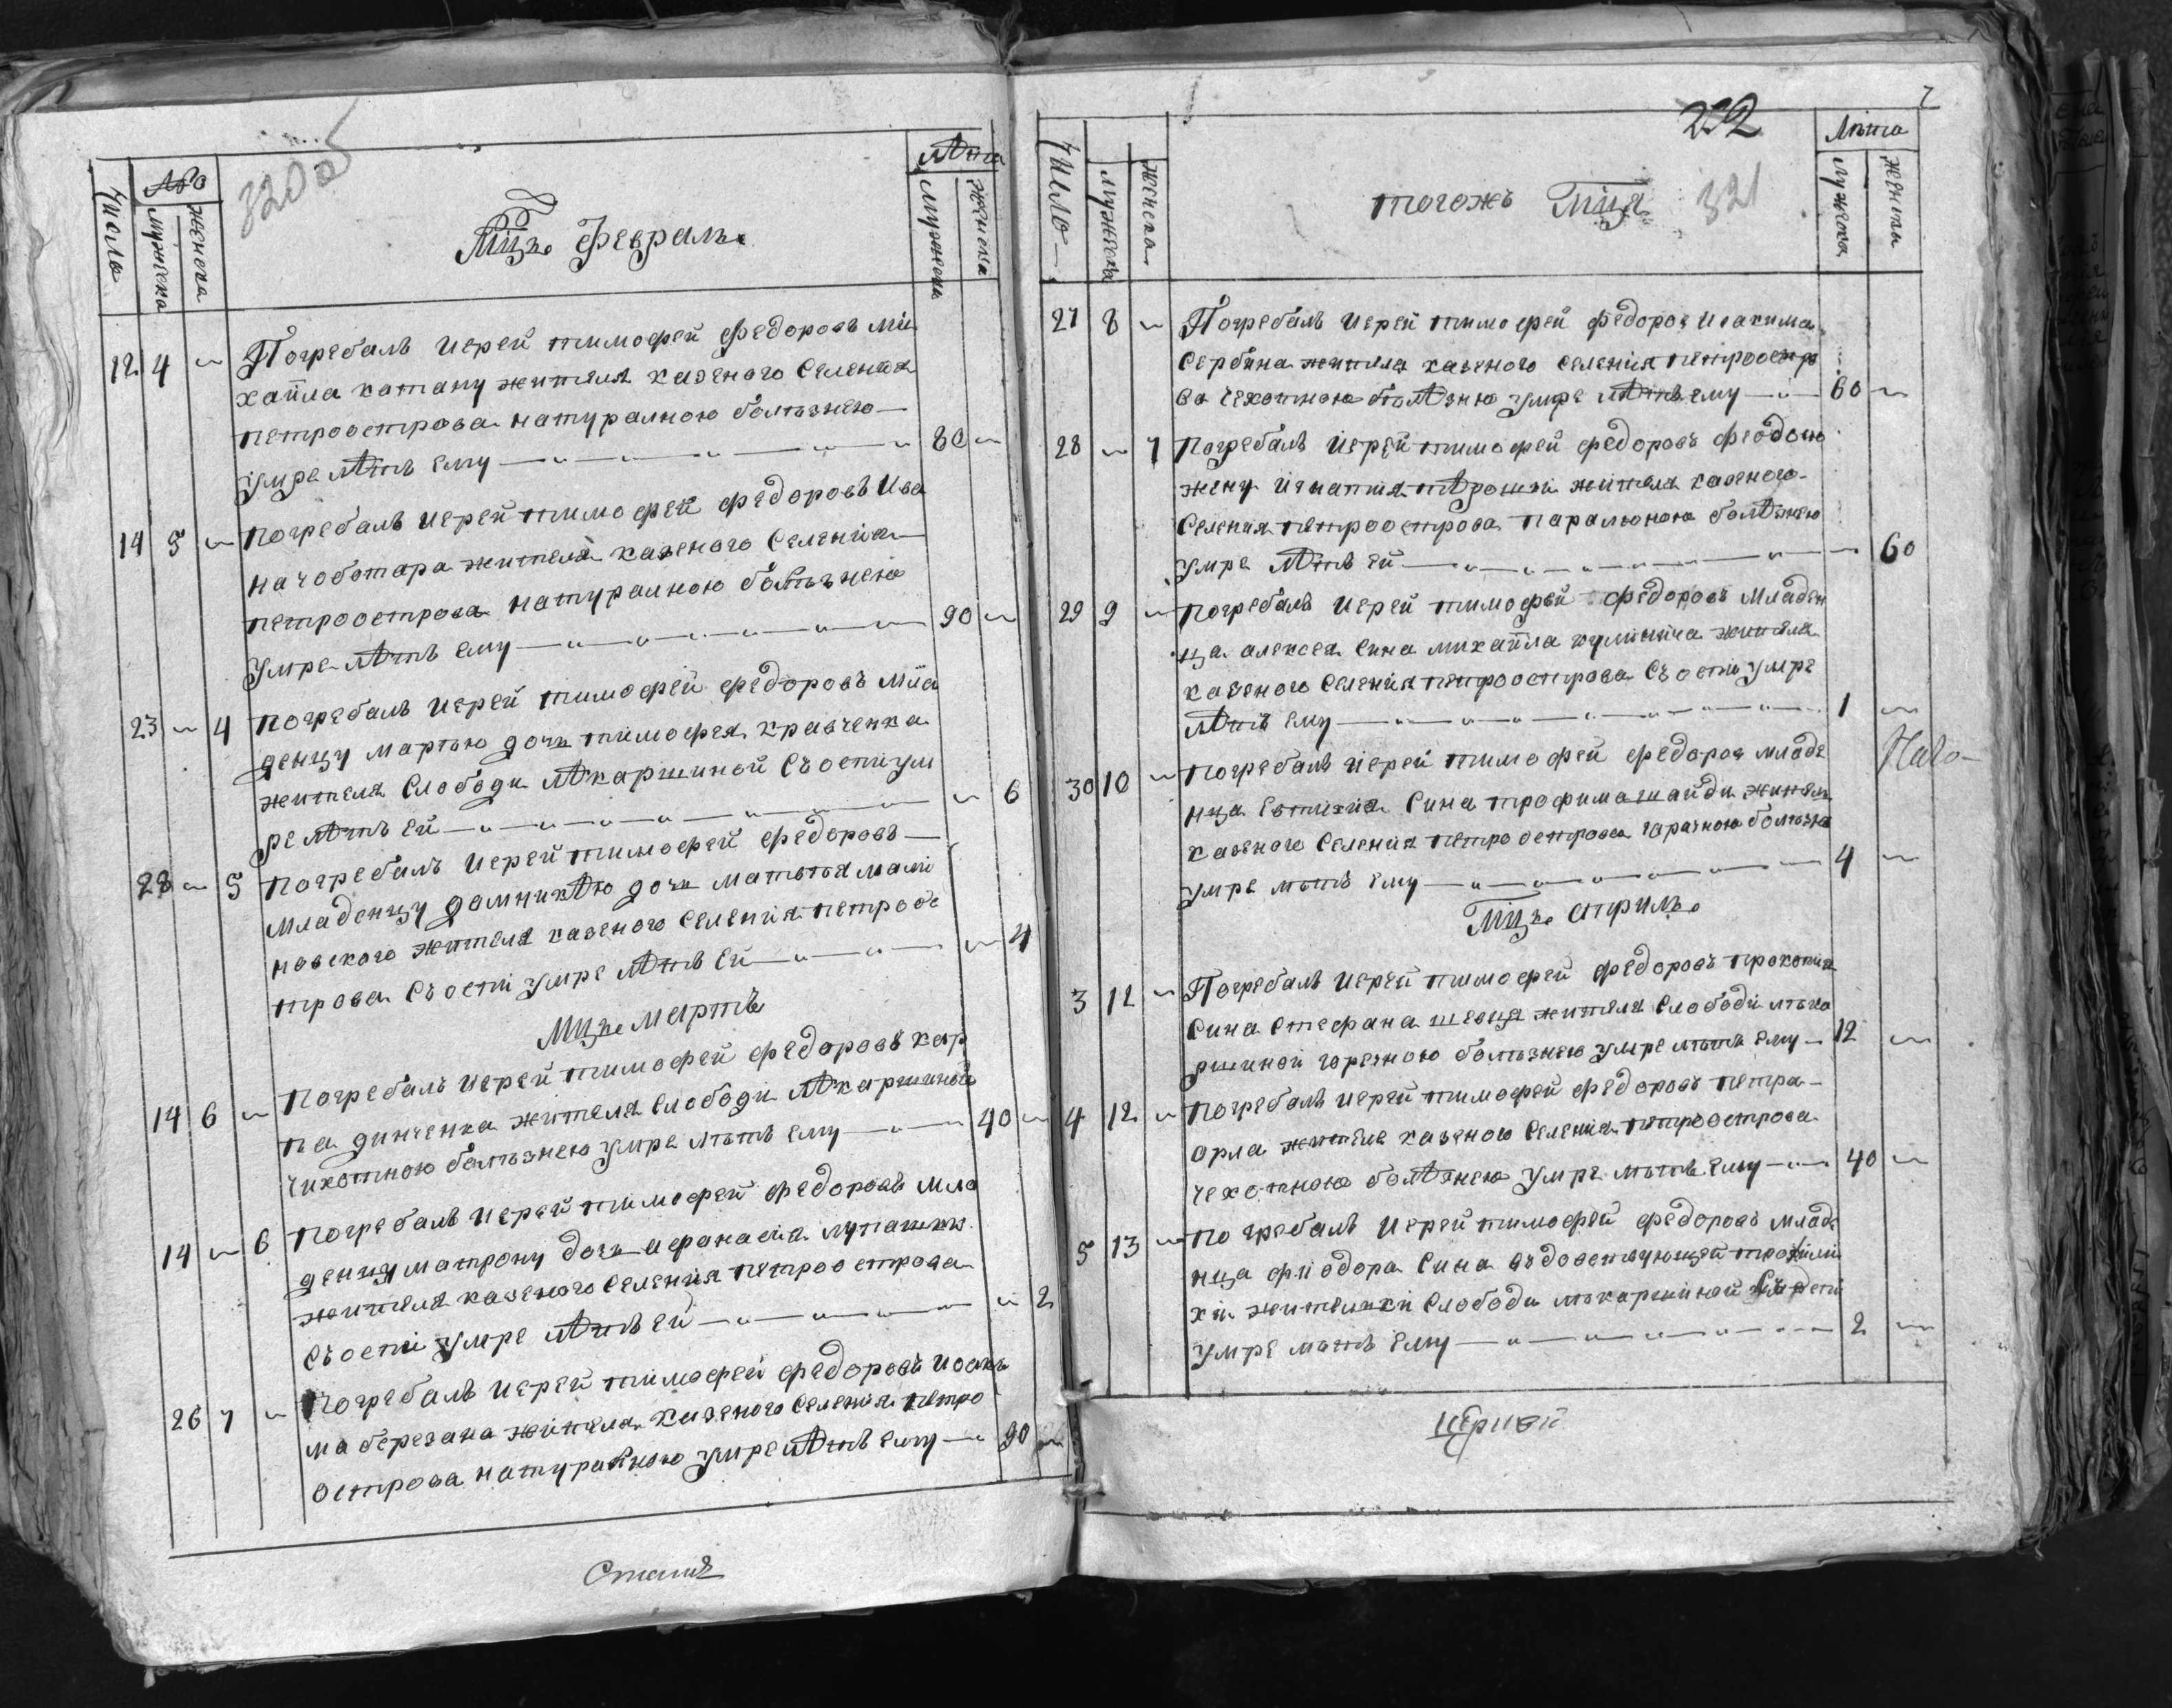 320об
Число
№о
мужеска
женска
Мцъ Февраль
лѣта
мужеска
женска
12 4 Погребалъ Иерей тимофей федоровъ Ми
хаила катану жителя казеного Селения
петроострова натуралною болѣзнею
умре лѣтъ ему 80
14 5 погребалъ иерей тимофей федоровъ Ива
на чоботара жителя казеного Селения
петроострова натуралною болѣзнею
умре лѣтъ ему 90
23 4 погребалъ иерей тимофей федоровъ мла
денцу марѳю дочь тимофея кравченка
жителя Слободи лѣкаршиной Съоспи ум
ре лѣтъ ей 6
28 5 погребалъ иерей тимофей федоровъ
младенцу домникѣю дочь матѳѣя мали
новского жителя казеного селения петроос
трова Съоспи умре лѣтъ ей 4
Мцъ мартъ
14 6 погребалъ иерей тимофей федоровъ кар
па динченка жителя слободи лѣкаршиной
чихотною болѣзнею умре лѣтъ ему 40
14 6 погребалъ иерей тимофей федоровъ мла
денцу матрону дочь афанасия лупашки
жителя казеного селения петроострова
Съоспи умре лѣтъ ей 2
26 7 погребалъ иерей тимофей федоровъ иоаки
ма березана жителя казеного селения петро
острова натуралною умре лѣтъ ему 90
7
292
321
Число
мужеска
женска
тогожъ Мця
лѣта
мужеска
женска
27 8 Погребалъ иерей тимофей федоров иоакима
Сербина жителя казеного селения петроостро
ва чехотною болѣзнию умре лѣтъ ему 60
28 7 погребалъ иерей тимофей федоровъ феодосю
жену игнатия жителя казеного
Селения петроострова паралюною болѣзнею
умре лѣтъ ей 60
29 9 погребалъ иерей тимофей федоровъ младен
ца алексея сина михаила кулинича жителя
казеного селения петроострова Съоспи умре
лѣтъ ему 1
30 10 погребалъ иерей тимофей федоров младе
нца Евтихия сина трофима шайди жителя
казеного селения петроострова гарачною болѣзн
умре лѣтъ ему 4
Мцъ априль
3 11 Погребалъ иерей тимофей федоровъ прокопия
сина стефана шевця жителя Слободи лѣка
ршиной горечною болѣзнею умре лѣтъ ему 12
4 12 погребалъ иерей тимофей федоровъ петра
орла жителя казеного селения петроострова
чехотною болѣзнею умре лѣтъ ему 40
5 13 погребалъ иерей тимофей федоровъ младе
нца фиодора сина вдовствующей трофими
хи жителки слободи лѣкаршиной
умре лѣтъ ему 2